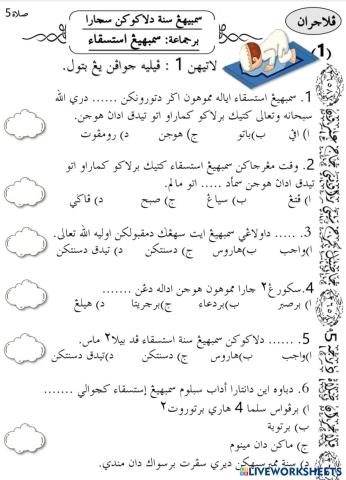 صلاة 5
ڤلاجران
(1
سمبهيڠ سنة دلاكوكن سچارا
برجماعة: سمبهيڠ استسقاء
لاتيهن 1 : ڤيليه جواڤن يڠ بتول.
1. سمبهيڠ استسقاء اياله مموهون اڬر دتورونكن ...... دري الله
سبحانه وتعالى كتيك برلاكو كماراو اتو تيدق ادان هوجن.
ا) اڤي ب)باتو ج) هوجن د) رومڤوت
2. وقت مڠرجاكن سمبهيڠ استسقاء كتيك برلاكو كماراو اتو
تيدق ادان هوجن سماد ..... اتو مالم.
ا) ڤتڠ ب) سياڠ ج) صبح د) ڤاڬي
3. ...... داولاڠي سمبهيڠ ايت سهڠڬ دمقبولكن اوليه الله تعالى.
ا)واجب ب)هاروس ج) دسنتكن د)تيدق دسنتكن
4.سكورڠ٢ جارا مموهون هوجن اداله دڠن .......
ا) برصبر ب)بردعاء ج)برجريتا د) هيلڠ
5. ...... دلاكوكن سمبهيڠ سنة استسقاء ڤد بيلا٢ ماس.
ا)واجب ب)هاروس ج) دسنتكن د)تيدق دسنتكن
6. دباوه اين دانتارا أداب سبلوم سمبهيڠ إستسقاء كچوالي .......
ا) برڤواس سلما 4 هاري برتوروت٢
ب) برتوبة
ج) ماكن دان مينوم
د) سنة ممبرسيهكن ديري سڤرت برسواك دان مندي.
5
LIVEWORKSHEETS